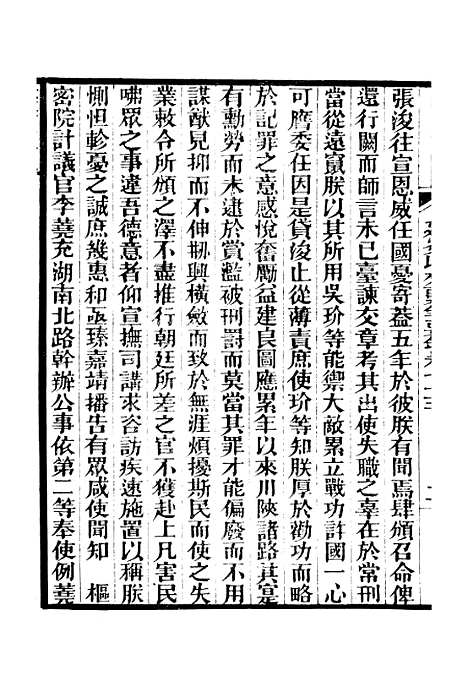 張浚往宣恩威任國憂寄葢五年於彼朕有聞焉肆頒召命俾
還行闕而師言未已臺諫交章考其出使失職之辜在於常刑
當從遠竄朕以其所用吳玠等能禦大敵累立戰功許國一心
可膺委任因是貸浚止從薄責庶使玠等知朕厚於勸功而微
於記罪之意感悅奮勵益建良圖應累年以來川陝諸路其寔
有勳勞而未逮於賞濫被刑罰而莫當其罪才能偏廢而不用
謀猷見抑而不伸刱興橫斂而致於無涯煩擾斯民而使之失
業敕令所頒之澤不盡推行朝廷所差之官不獲赴上凡害民
咈眾之事違吾德意者仰宣撫司講求咨訪疾速施置以稱朕
惻怛軫憂之誠庶幾惠和亟臻嘉靖播告有眾咸使聞知　樞
密院計議官李蕘充湖南北路幹辦公事依第二等奉使例蕘